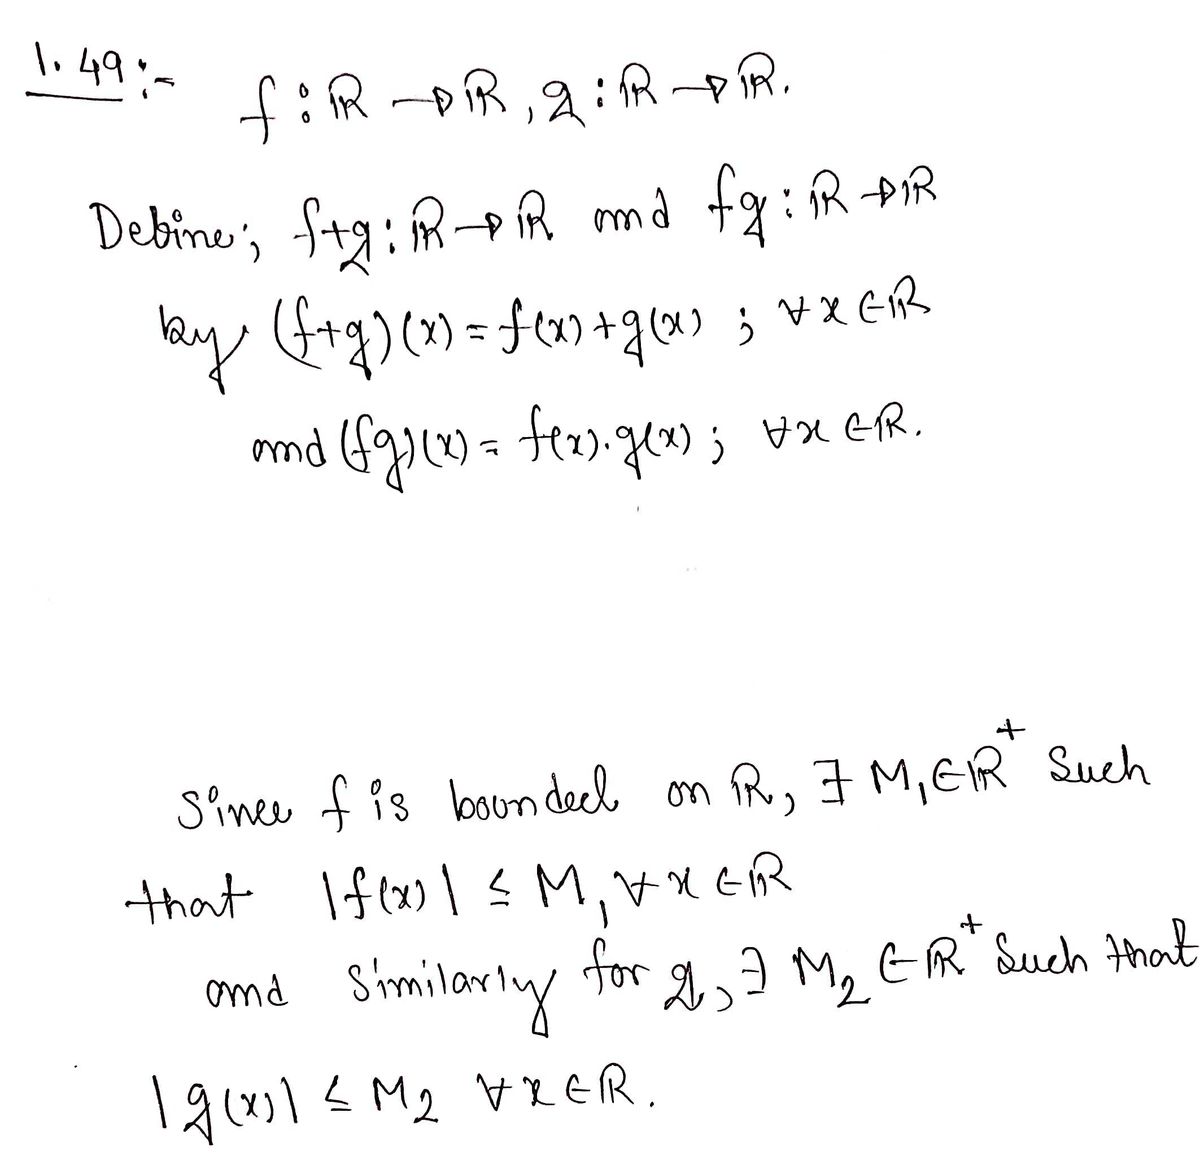 1.49:-
f : ℝ → ℝ, g : ℝ → ℝ.
Define; f+g : ℝ → ℝ and fg : ℝ → ℝ
by (f+g)(x) = f(x) + g(x) ; ∀ x ∈ ℝ
and (fg)(x) = f(x).g(x) ; ∀x ∈ ℝ.
Since f is bounded on ℝ, ∃ M₁ ∈ ℝ⁺ Such
that |f(x)| ≤ M₁ ∀ x ∈ ℝ
and similarly for g, ∃ M₂ ∈ ℝ⁺ Such that
|g(x)| ≤ M₂ ∀ x ∈ ℝ.